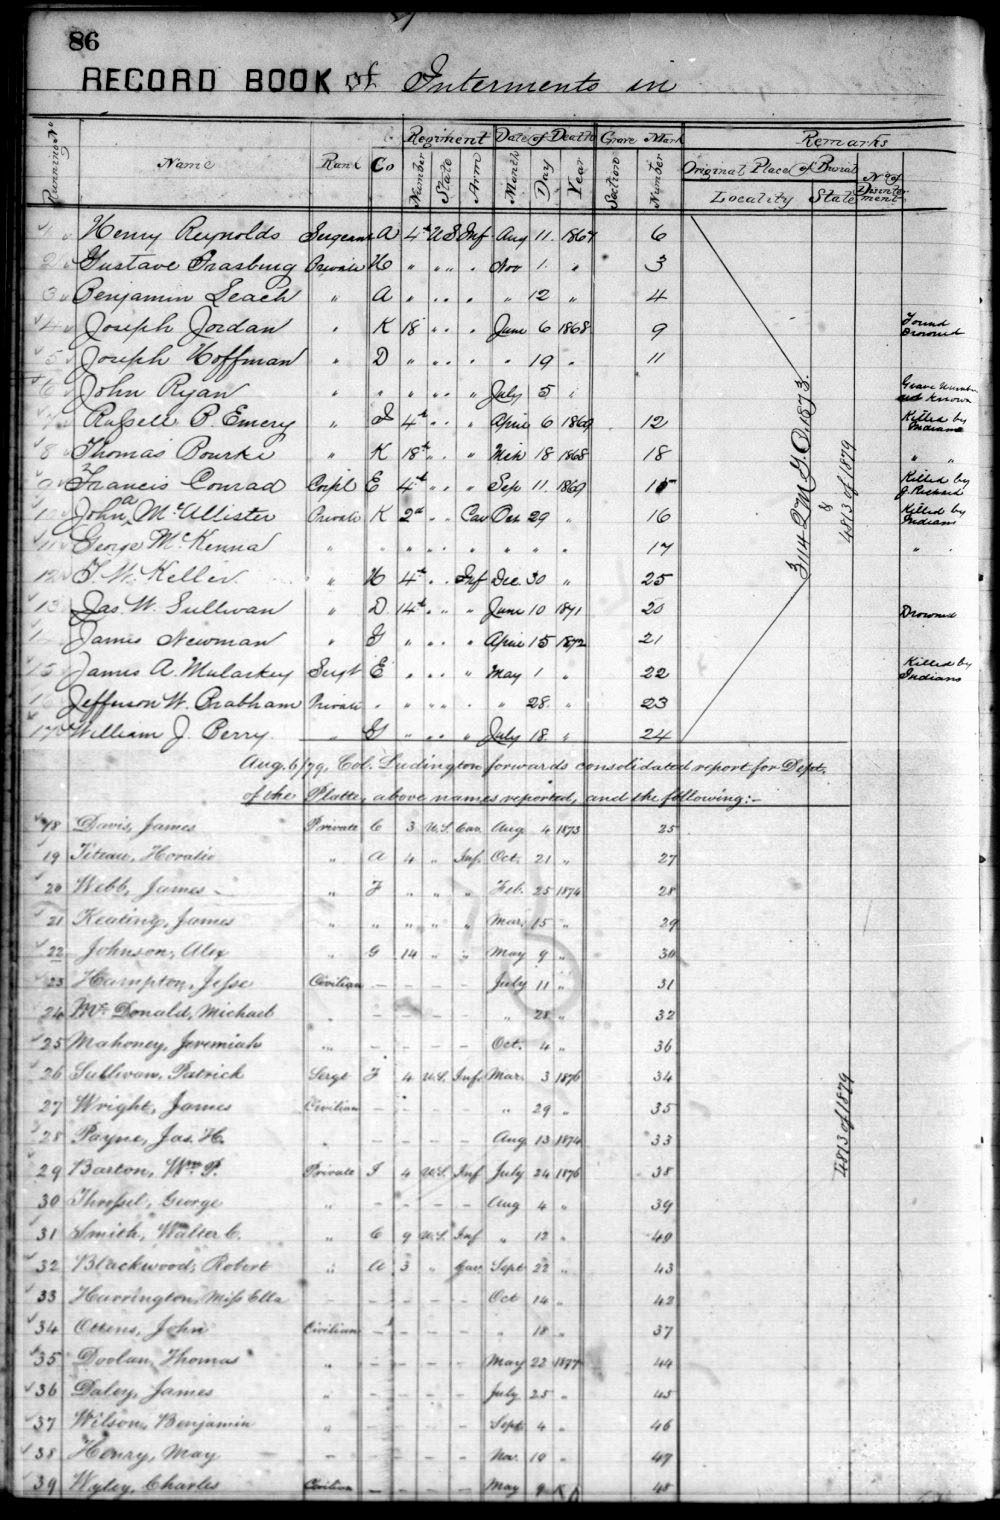 86
RECORD BOOK of Interments in
Running No Name Rank Co Regiment Date of Death Grave Mark Remarks
Number State Arm Month Day Year Section Number Original Place of Burial No of Disinterment
Locality State
1 Henry Reynolds Sergeant A 4th U S Inf Aug 11 1867 6
2 Gustave Prasburg Private H " " " " Nov 1 " 3
3 Benjamin Leach " A " " " " " 12 " 4
4 Joseph Jordan " K 18 " " " June 6 1868 9 Found Drowned
5 Joseph Hoffman " D " " " " " 19 " 11
6 John Ryan " " " " " " July 5 " Grave Number not known
7 Russell P. Emery " I 4th " " " April 6 1869 12 Killed by Indians
8 Thomas Rourke " K 18th " " " Mch 18 1868 18 " "
9 Francis Conrad Corpl E 4th " " " Sep 11 1869 15 Killed by J. Richard
10 John McAllister Private K 2d " " Cav Oct 29 " 16 Killed by Indians
11 George McKenna " " " " " " " " " 17 "
12 T. W. Keller " H 4th " " Inf Dec. 30 " 25
13 Jas W. Sullivan " D 14th " " " June 10 1871 20 Drowned
14 James Newman " G " " " " April 15 1872 21
15 James A. Mularkey Sergt E " " " " May 1 " 22 Killed by Indians
16 Jefferson W. Brabham Private " " " " " " 28 " 23
17 William J. Perry " G " " " " July 18 " 24
3114 Q M G. O. 1873.
&
4813 of 1879
Aug. 6/79, Col. Ludington forwards consolidated report for Dept.
of the Platte, above names reported, and the following:-
18 Davis, James Private C 3 U.S. Cav. Aug 4 1873 25
19 Titeau, Horatio " A 4 " Inf. Oct. 21 " 27
20 Webb, James " F " " " Feb. 25 1874 28
21 Keating, James " " " " " Mar. 15 " 29
22 Johnson, Alex " G 14 " " May 9 " 30
23 Hampton, Jesse Civilian - - - - July 11 " 31
24 McDonald, Michael " - - - - " 28 " 32
25 Mahoney, Jeremiah " - - - - Oct. 4 " 36
26 Sullivan, Patrick Sergt F 4 U.S. Inf. Mar. 3 1876 34
27 Wright, James Civilian - - - - " 29 " 35
28 Payne, Jas. H. " - - - - Aug 13 1874 33
29 Barton, Wm P. Private I 4 U.S. Inf July 24 1876 38
30 George " - - - - Aug 4 " 39
31 Smith, Walter C. " C 9 U.S. Inf " 12 " 40
32 Blackwood, Robert " A 3 " Cav. Sept 22 " 43
33 Harrington, Miss Ella - - - - Oct 14 " 42
34 Ottens, John Civilian - - - - " 18 " 37
35 Doolan, Thomas " - - - - May 22 1877 44
36 Daley, James " - - - - July 25 " 45
37 Wilson, Benjamin " - - - - Sept 4 " 46
38 Henry, May - - - - Nov. 10 " 47
39 Wyley, Charles Civilian - - - - May 9 48
4813 of 1879